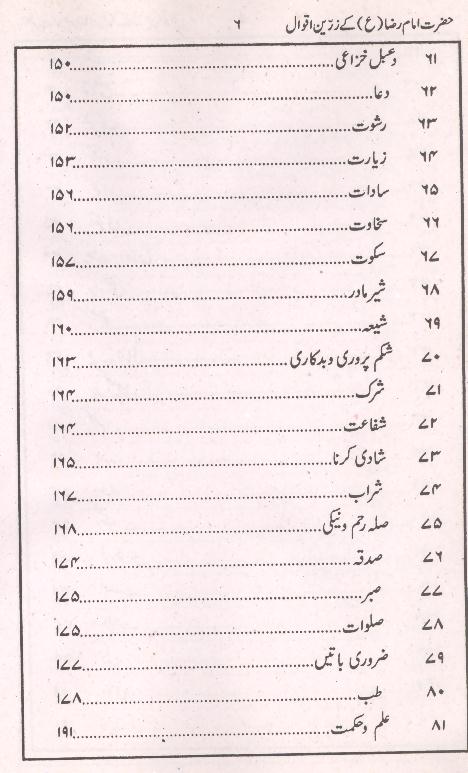 حضرت امام رضا (ع) کے زرّین اقوال ۶
۶۱ دعبل خزاعی ۱۵۰
۶۲ دعا ۱۵۰
۶۳ رشوت ۱۵۲
۶۴ زیارت ۱۵۳
۶۵ سادات ۱۵۶
۶۶ سخاوت ۱۵۶
۶۷ سکوت ۱۵۷
۶۸ شیر مادر ۱۵۹
۶۹ شیعہ ۱۶۰
۷۰ شکم پروری و بدکاری ۱۶۳
۷۱ شرک ۱۶۴
۷۲ شفاعت ۱۶۴
۷۳ شادی کرنا ۱۶۵
۷۴ شراب ۱۶۷
۷۵ صلہ رحم و نیکی ۱۶۸
۷۶ صدقہ ۱۷۴
۷۷ صبر ۱۷۵
۷۸ صلوات ۱۷۵
۷۹ ضروری باتیں ۱۷۷
۸۰ طب ۱۷۸
۸۱ علم و حکمت ۱۹۱